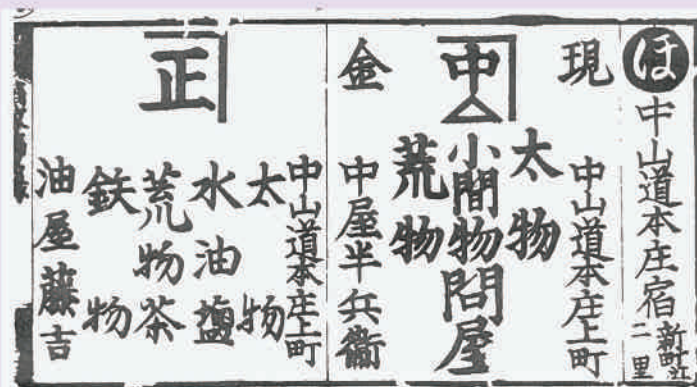 ほ
中山道本庄宿
新町江
二里
現
金
中
中山道本庄上町
太物
小間物問屋
荒物
中屋半兵衞
正
中山道本庄上町
太物
水油鹽
荒物茶
鉄物
油屋藤吉